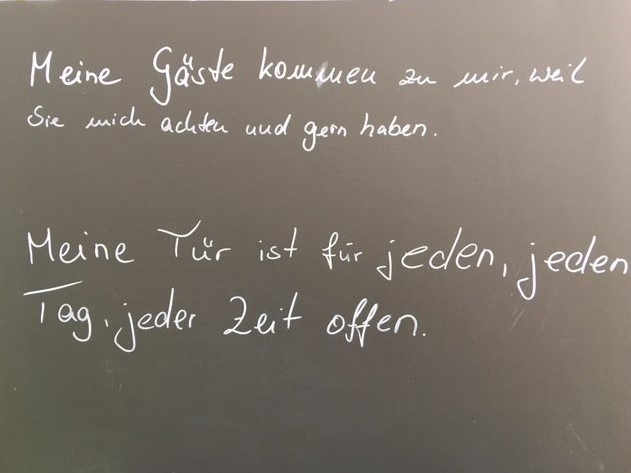 Meine Gäste kommen zu mir, weil
Sie mich achten und gern haben.
Meine Tür ist für jeden, jeden
Tag, jeder Zeit offen.